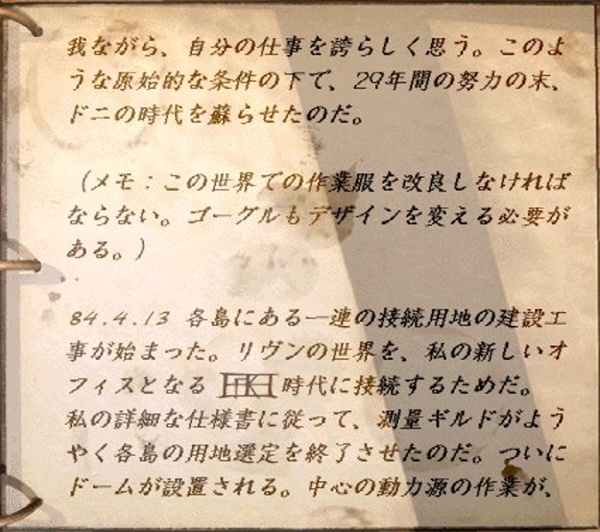 我ながら、自分の仕事を誇らしく思う。このよ
うな原始的な条件の下で、29年間の努力の末、
ドニの時代を蘇らせたのだ。
（メモ：この世界での作業服を改良しなければ
ならない。ゴーグルもデザインを変える必要が
ある。）
84.4.13 各島にある一連の接続用地の建設工
事が始まった。リヴンの世界を、私の新しいオ
フィスとなる 時代に接続するためだ。
私の詳細な仕様書に従って、測量ギルドがよう
やく各島の用地選定を終了させたのだ。ついに
ドームが設置される。中心の動力源の作業が、